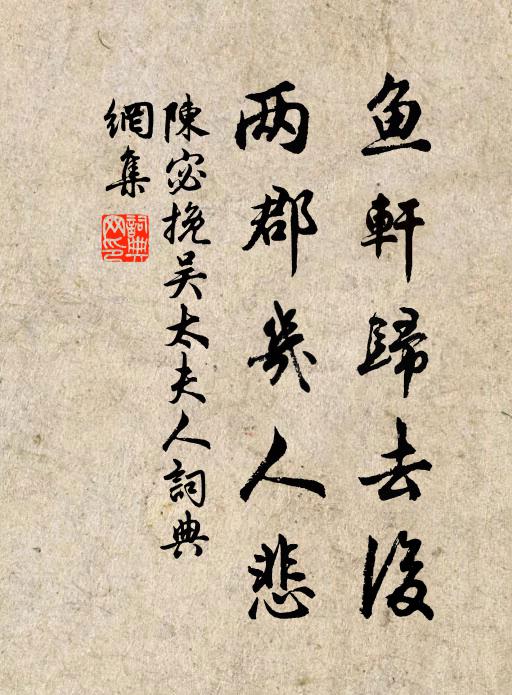 鱼軒歸去後
两郡幾人悲
陳宓挽吴太夫人詞典
網集
詞典網印